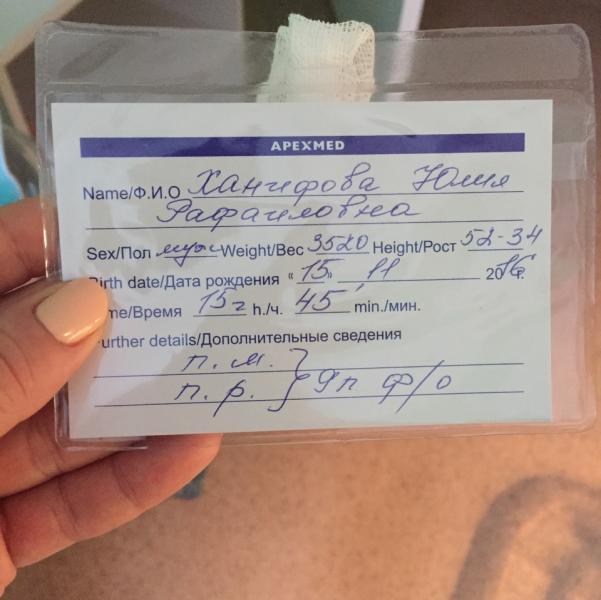 APEXMED
Name/Ф.И.О Ханифова Юлия
Рафаиловна
Sex/Пол муж Weight/Вес 3520 Height/Рост 52-34
Birth date/Дата рождения "15" 11 2016г.
me/Время 15 г h./ч. 45 min./мин.
urther details/Дополнительные сведения
п. м. }
п. р. } 9п ф/о